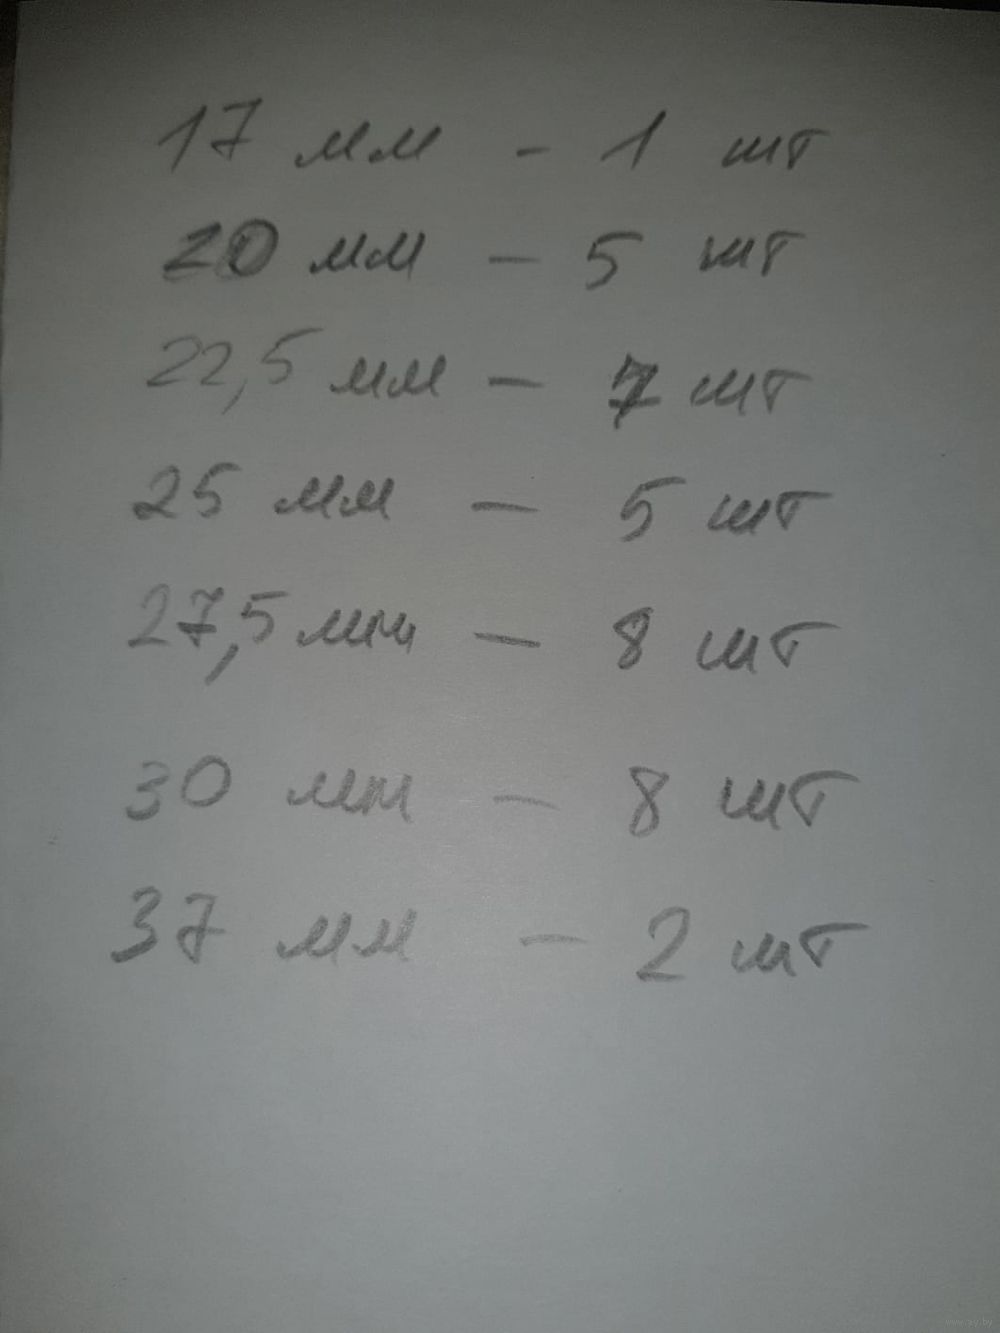 17 мм - 1 шт
20 мм - 5 шт
22,5 мм - 7 шт
25 мм - 5 шт
27,5 мм - 8 шт
30 мм - 8 шт
37 мм - 2 шт
www.ay.by